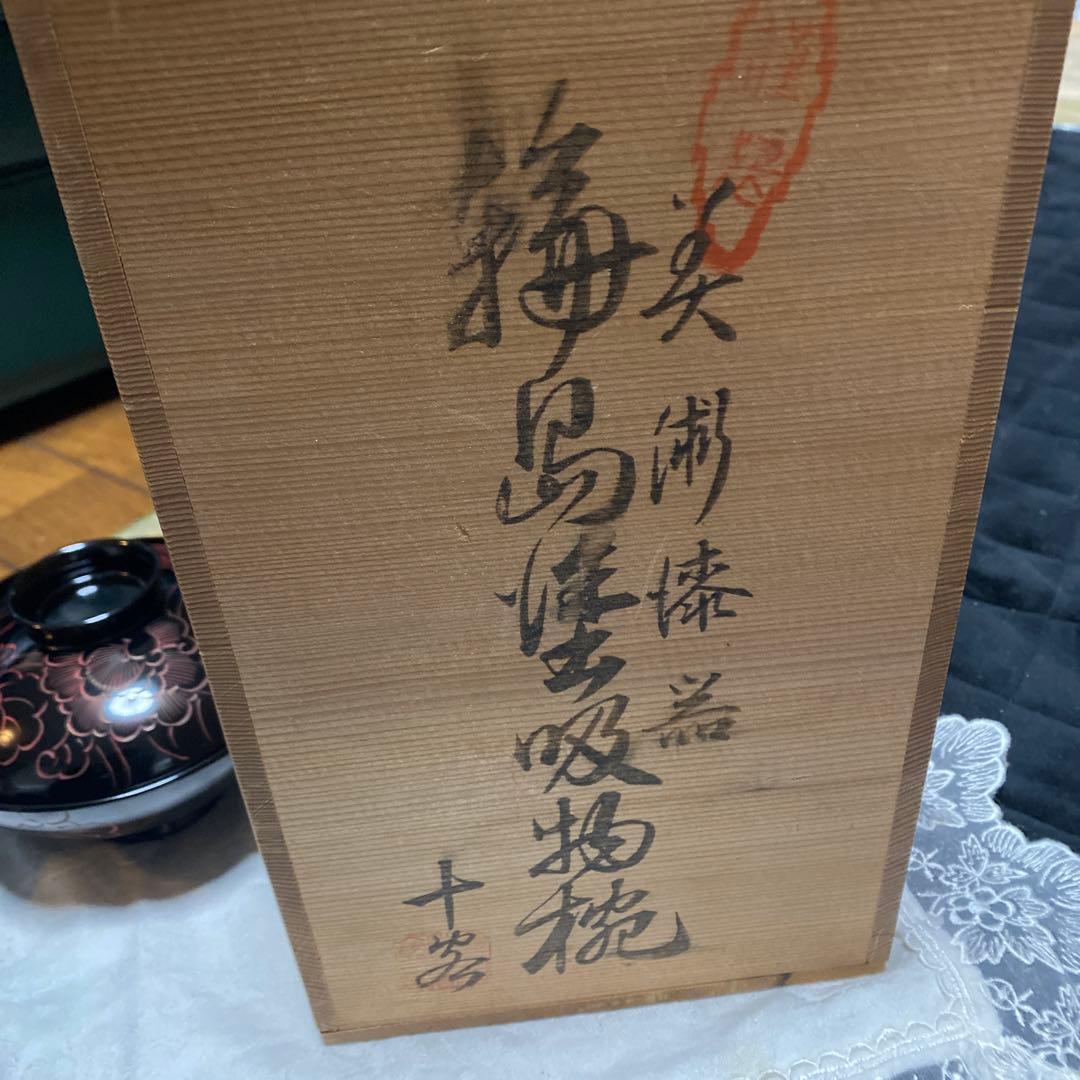 美術漆器
輪島塗吸物椀
十客